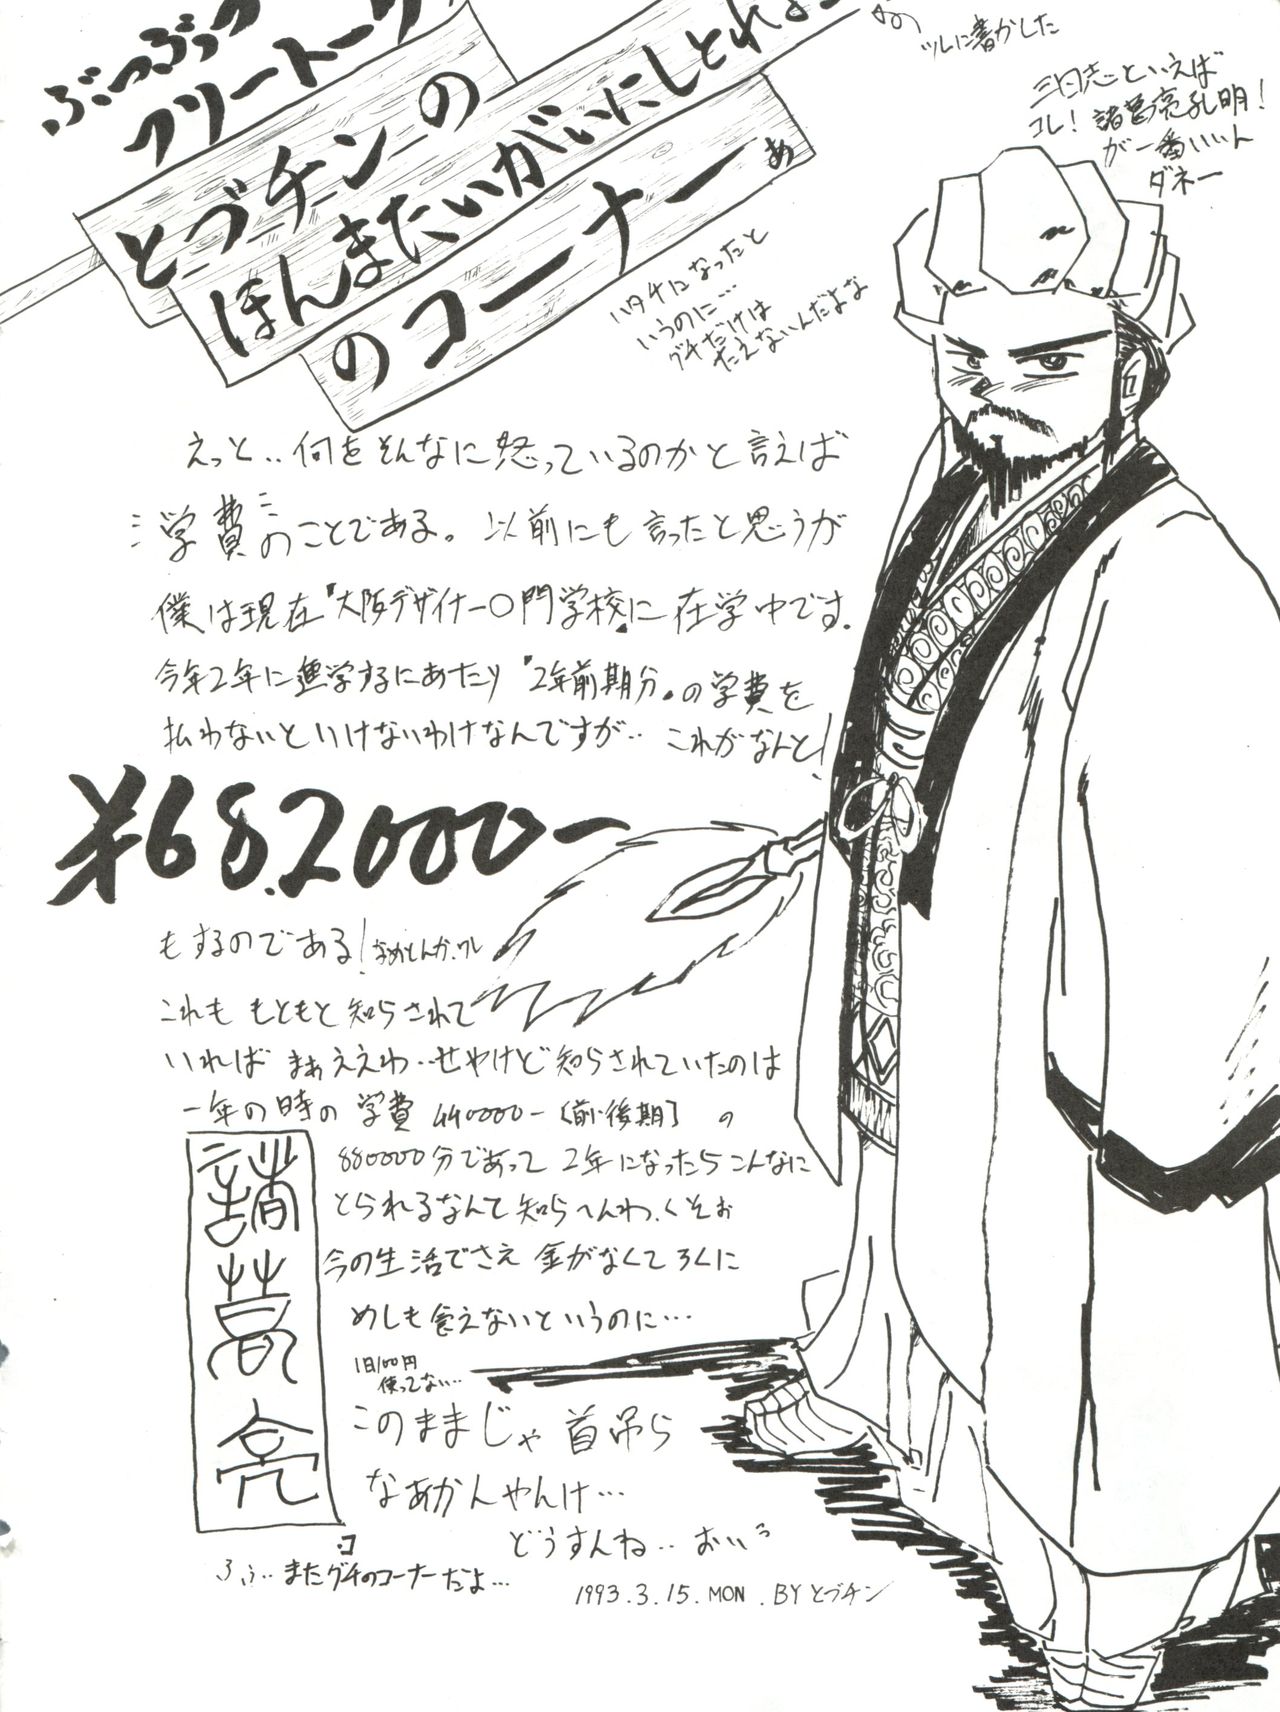 ぶつぶつ
フリートーク
とづチンの
ほんまたいがいにしとれよー
のコーナーぁ
ツレに書かした
三国志といえば
コレ！諸葛亮孔明！
が一番いいん
ダネー
ハタチになったと
いうのに…
グチだけは
たえないんだよな
えっと‥何をそんなに怒っているのかと言えば
学費のことである。以前にも言ったと思うが
僕は現在『大阪デザイナー〇門学校』に在学中です.
今年2年に進学するにあたり『2年前期分』の学費を
払わないといけないわけなんですが‥これがなんと!
¥682000-
もするのである!なめとんか.ワレ
これももともと知らされて
いればまぁええわ‥せやけど知らされていたのは
一年の時の学費440000-〔前・後期〕の
880000分であって2年になったらこんなに
とられるなんて知らへんわ.くそぉ
今の生活でさえ金がなくてろくに
めしも食えないというのに…
1日100円
使ってない…
このままじゃ首吊ら
なあかんやんけ…
どうすんね‥おいっ
諸葛亮
ふぅ‥またグチのコーナーだよ…
1993.3.15.MON.BYとづチン